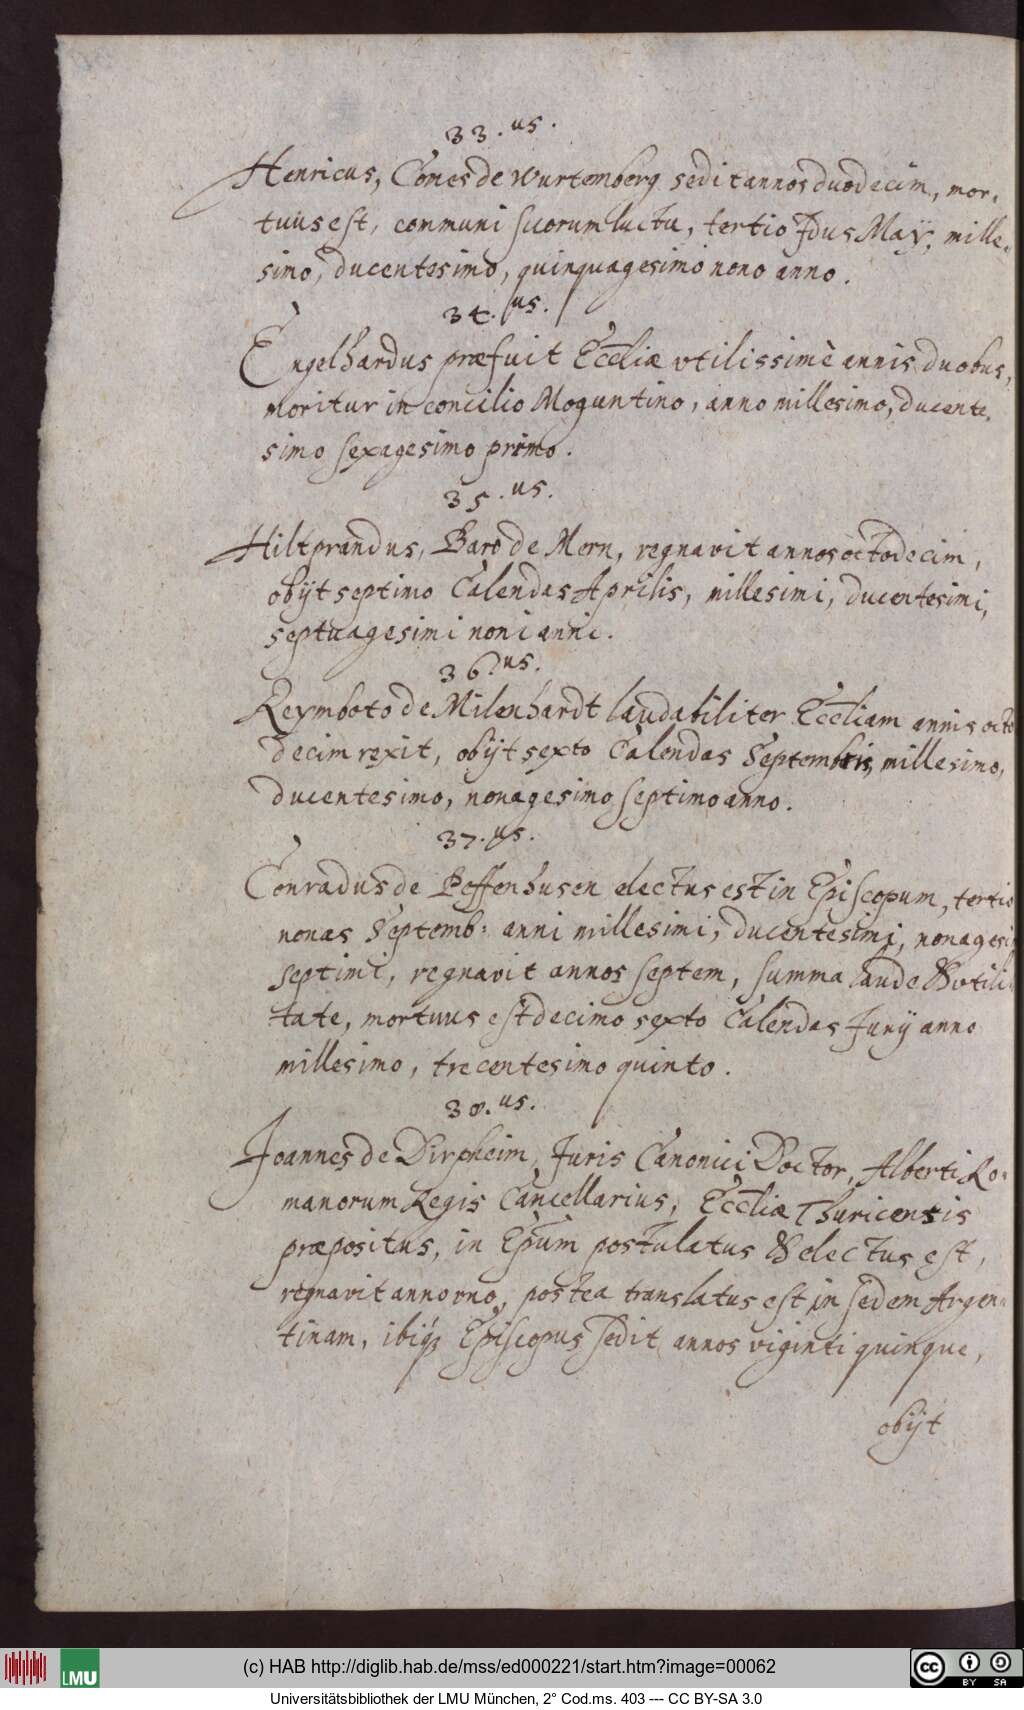 33.us.
Henricus, Comes de Wurtemberg sedit annos duodecim, mor-
tuus est, communi suorum luctu, tertio Idus Maÿ, mille-
simo, ducentesimo, quinquagesimo nono anno.
34.us.
Engelhardus præfuit Eccliæ vtilissimè annis duobus,
moritur in concilio Moguntino, anno millesimo, ducente-
simo sexagesimo primo.
35.us.
Hiltprandus, Baro de Mern, regnavit annos octodecim,
obijt septimo Calendas Aprilis, millesimi, ducentesimi,
septuagesimi noni anni.
36.us.
Reymboto de Milenhardt laudabiliter Eccliam annis octo
decim rexit, obijt sexto Calendas Septembris, millesimo,
ducentesimo, nonagesimo septimo anno.
37.us.
Conradus de Peffenhusen electus est in Episcopum, tertio
nonas Septemb: anni millesimi, ducentesimi, nonagesi
septimi, regnavit annos septem, summa laude & vtili
tate, mortuus est decimo sexto Calendas Junÿ anno
millesimo, trecentesimo quinto.
38.us.
Joannes de Dirpheim, Juris Canonici Doctor, Alberti Ro-
manorum Regis Cancellarius, Eccliæ Thuricensis
præpositus, in Epūm postulatus & electus est,
regnavit anno vno, postea translatus est in sedem Argen-
tinam, ibiq; Episcopus sedit annos viginti quinque,
obijt
(c) HAB http://diglib.hab.de/mss/ed000221/start.htm?image=00062
LMU
BY SA
Universitätsbibliothek der LMU München, 2° Cod.ms. 403 --- CC BY-SA 3.0